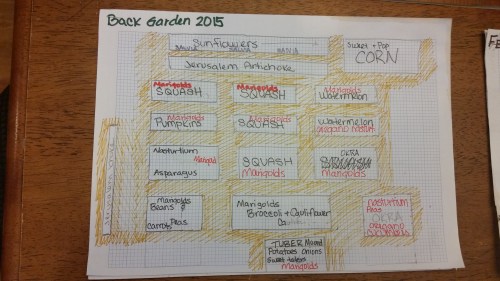 Back Garden 2015
Sunflowers
Jerusalem Artichoke
Sweet + Pop
CORN
Marigolds
SQUASH
Marigolds
SQUASH
Marigolds
Watermelon
Marigolds
Pumpkins
Marigolds
SQUASH
Watermelon
oregano
Nasturtium
Marigold
Asparagus
SQUASH
Marigolds
OKRA
Marigolds
Marigolds
Beans &
Peas
Carrots
Marigolds
Broccoli + Cauliflower
Nasturtium
Peas
OKRA
oregano
TUBER Mound
Potatoes Onions
Sweet taters
Marigolds